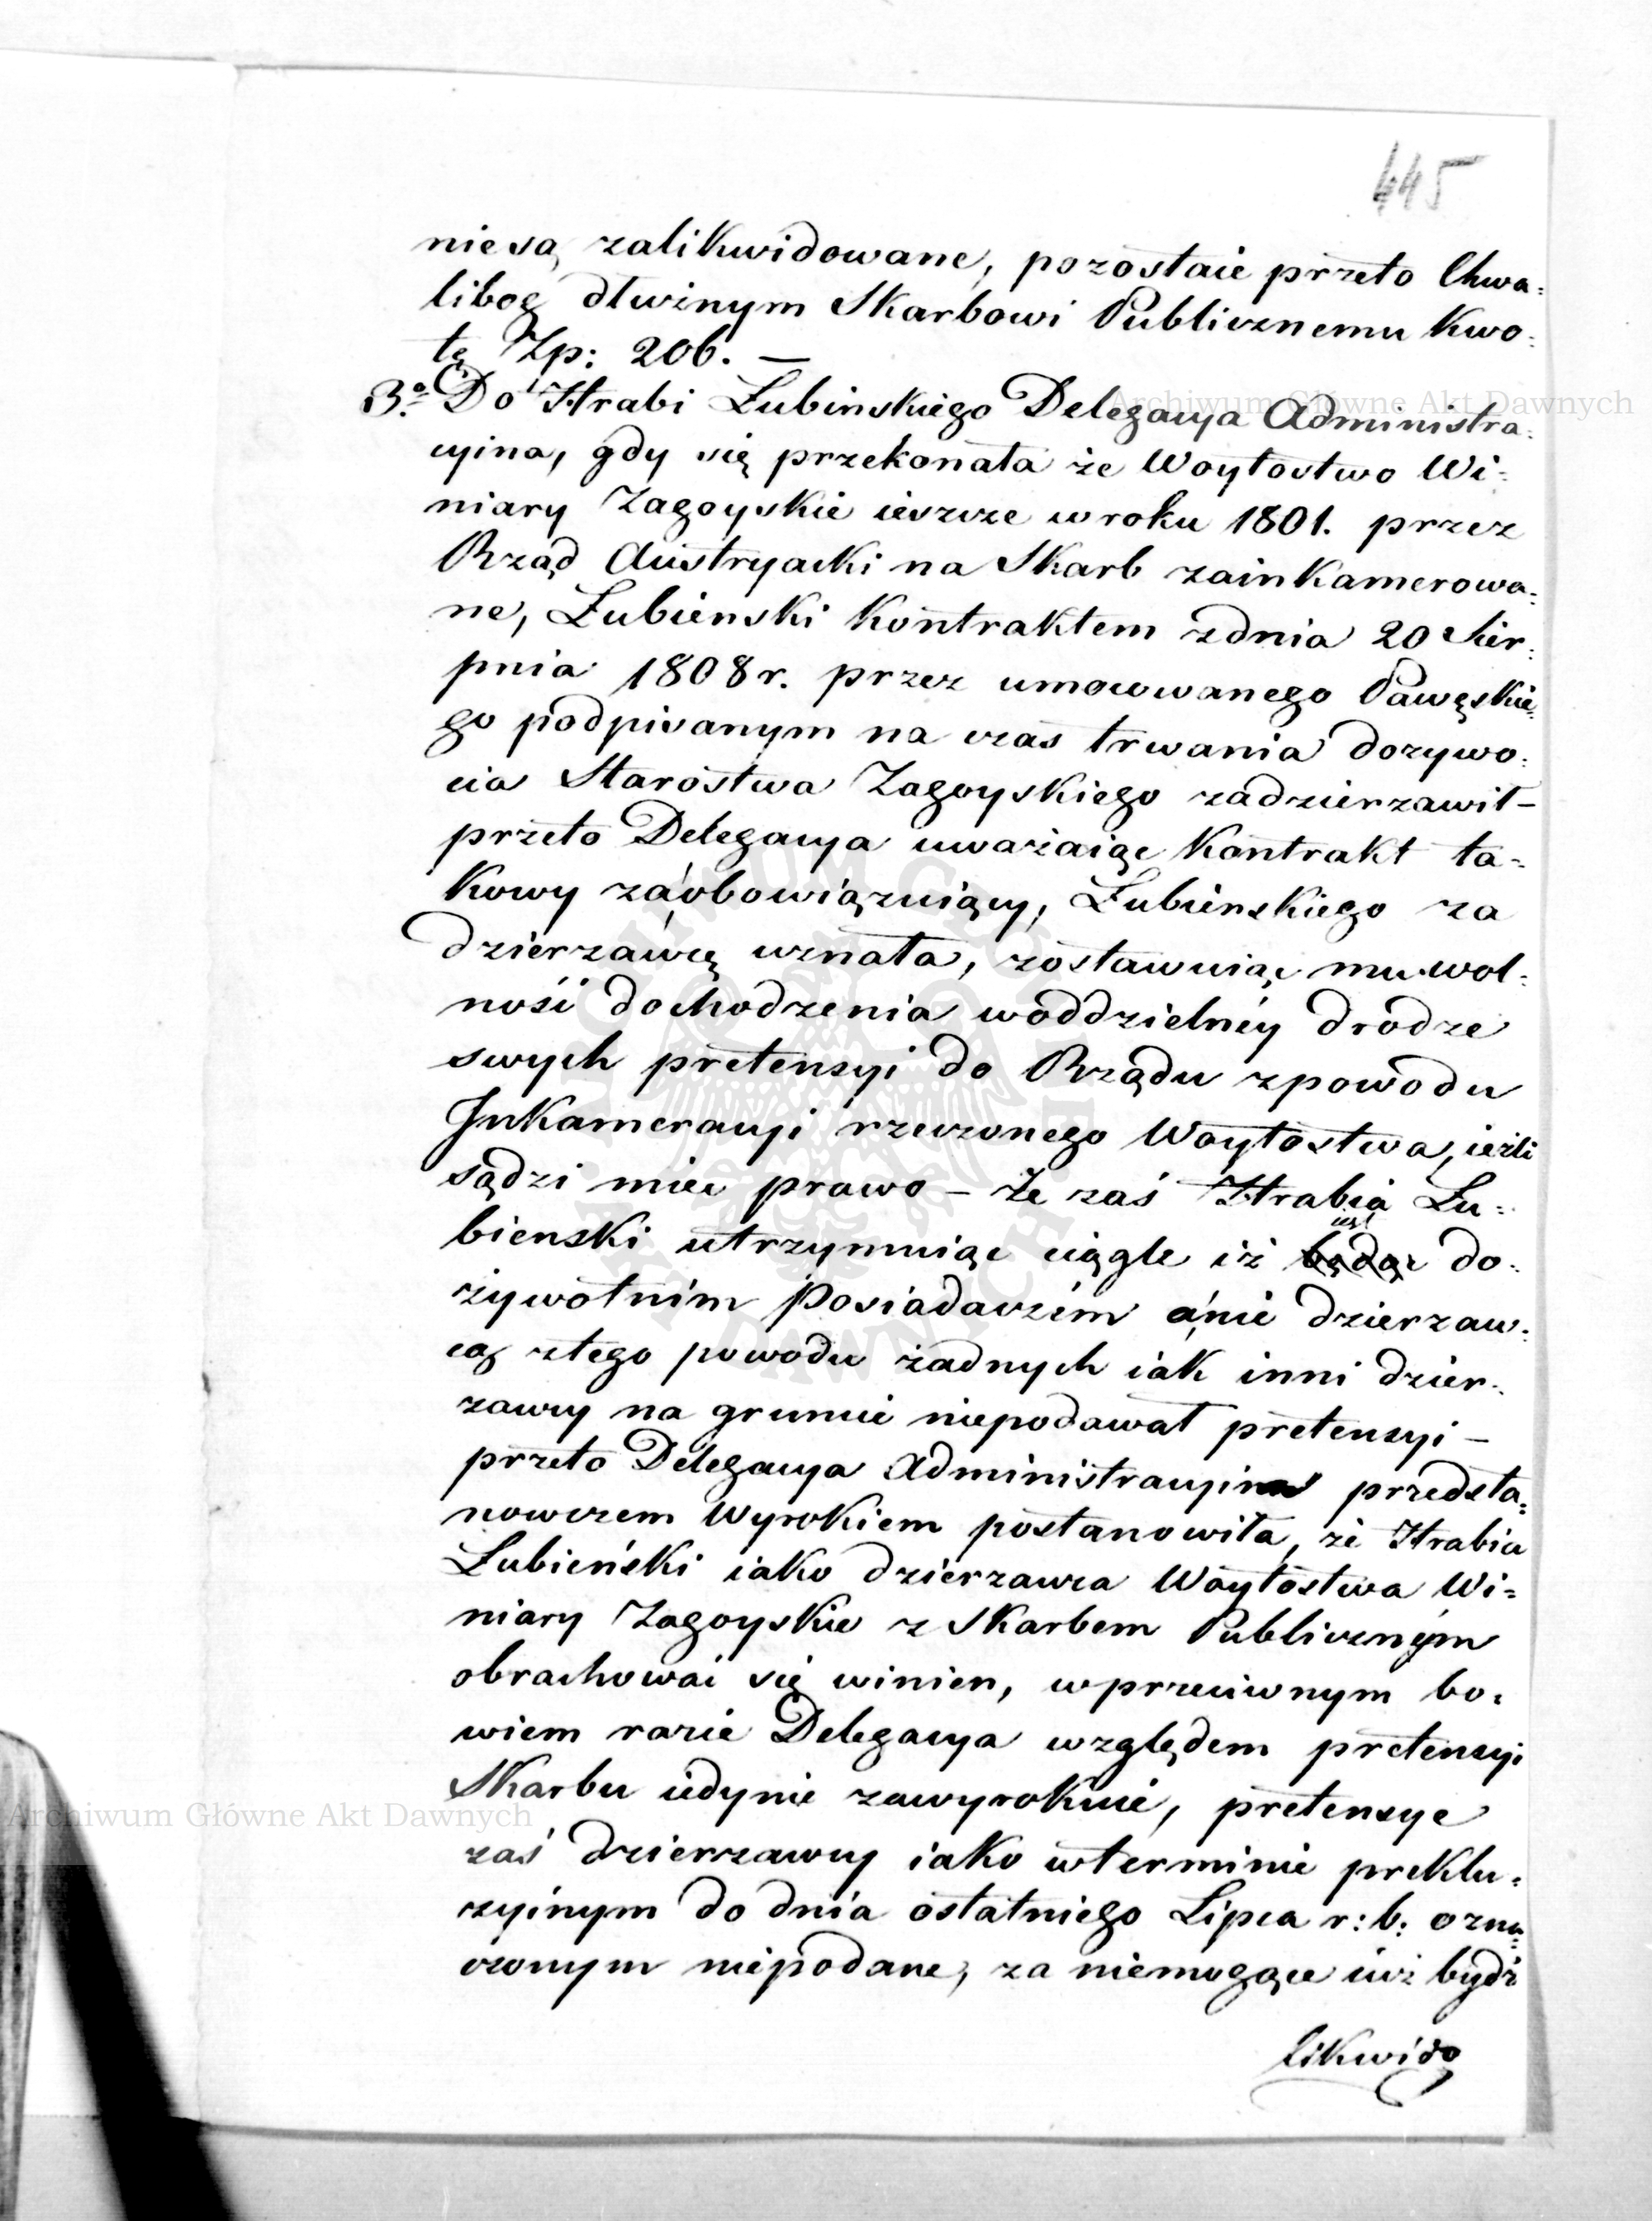 445
nie są zalikwidowane, pozostaie przeto Chwa=
libog dłużnym Skarbowi Publicznemu kwo=
tę Zp: 206. —
3.o Do Hrabi Łubinskiego Delegacya Administra=
cyina, gdy się przekonała że Woytostwo Wi=
niary Zagoyskie ieszcze w roku 1801. przez
Rząd Austryacki na Skarb zainkamerowa=
ne, Łubienski kontraktem z dnia 20 Sier=
pnia 1808 r. przez umocowanego Pawęskie=
go podpisanym na czas trwania dozywo=
cia Starostwa Zagoyskiego zadzierzawił —
przeto Delegacya uważaiąc kontrakt ta=
kowy za obowiązuiący, Łubienskiego za
dzierzawcę uznała, zostawuiąc mu wol=
ność dochodzenia w oddzielnéy drodze
swych pretensyi do Rządu z powodu
Inkameracyi rzeczonego Woytostwa, ieżli
sądzi mieć prawo — Że zaś Hrabia Łu=
iest
bienski utrzymuiąc ciągle iż będąc do=
żywotnim Posiadaczem a nie dzierzaw=
cą z tego powodu żadnych iak inni dzier=
zawcy na gruncie niepodawał pretensyi —
przeto Delegacya Administracyina przedsta=
nowczem Wyrokiem postanowiła, że Hrabia
Łubieński iako dzierzawca Woytostwa Wi=
niary Zagoyskie z Skarbem Publicznym
obrachować się winien, w przeciwnym bo=
wiem razie Delegacya względem pretensyi
Skarbu iedynie zawyrokuie, pretensye
zaś dzierzawcy iako w terminie preklu=
zyinym do dnia ostatniego Lipca r: b: ozna=
czonym niepodane, za niemogące iuż bydź
likwido
Archiwum Główne Akt Dawnych
Archiwum Główne Akt Dawnych